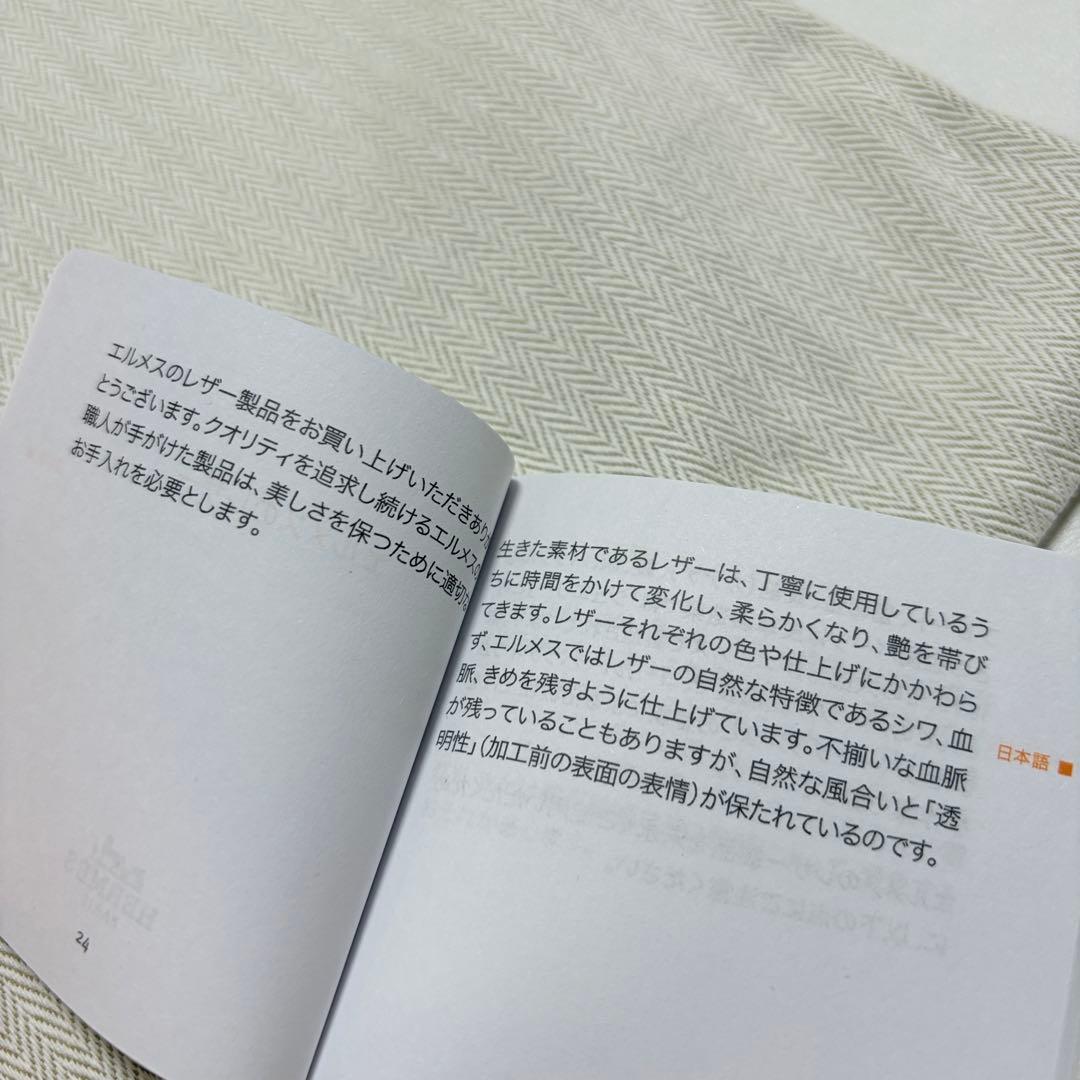 エルメスのレザー製品をお買い上げいただきあり
とうございます。クオリティを追求し続けるエルメスの
職人が手がけた製品は、美しさを保つために適切な
お手入れを必要とします。
24
生きた素材であるレザーは、丁寧に使用しているう
ちに時間をかけて変化し、柔らかくなり、艶を帯び
てきます。レザーそれぞれの色や仕上げにかかわら
ず、エルメスではレザーの自然な特徴であるシワ、血
脈、きめを残すように仕上げています。不揃いな血脈
が残っていることもありますが、自然な風合いと「透
明性」（加工前の表面の表情）が保たれているのです。
日本語